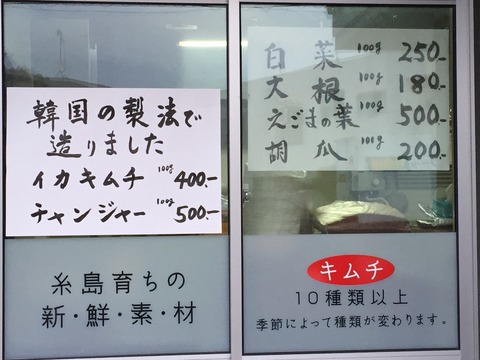 韓国の製法で
造りました
イカキムチ 100g 400.-
チャンジャー 100g 500.-
糸島育ちの
新・鮮・素・材
白菜 100g 250.-
大根 100g 180.-
えごまの葉 100g 500.-
胡瓜 100g 200.-
キムチ
10種類以上
季節によって種類が変わります。